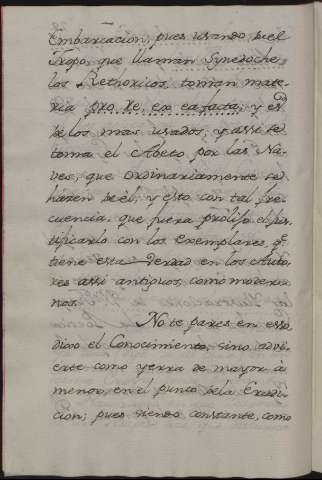 Embarcacion, pues usando, de el
Tropo, que llaman Synedoche
los Rethoricos, toman mate-
ria pro re, ex ea facta; y es
de los mas usados; y assi se
toma el Abeto por las Na-
ves, que ordinariamente se
hazen de él; y esto con tal fre-
cuencia, que fuera prolijo el jus-
tificarlo con los exemplares, q.e
tiene esta Verdad en los Auto-
res assi antiguos, como moder-
nos.
No te pares en esso
dixo el Conocimiento, sino advi-
erte como yerra de mayor à
menor, en el punto de la Erudi-
cion; pues siendo constante, como